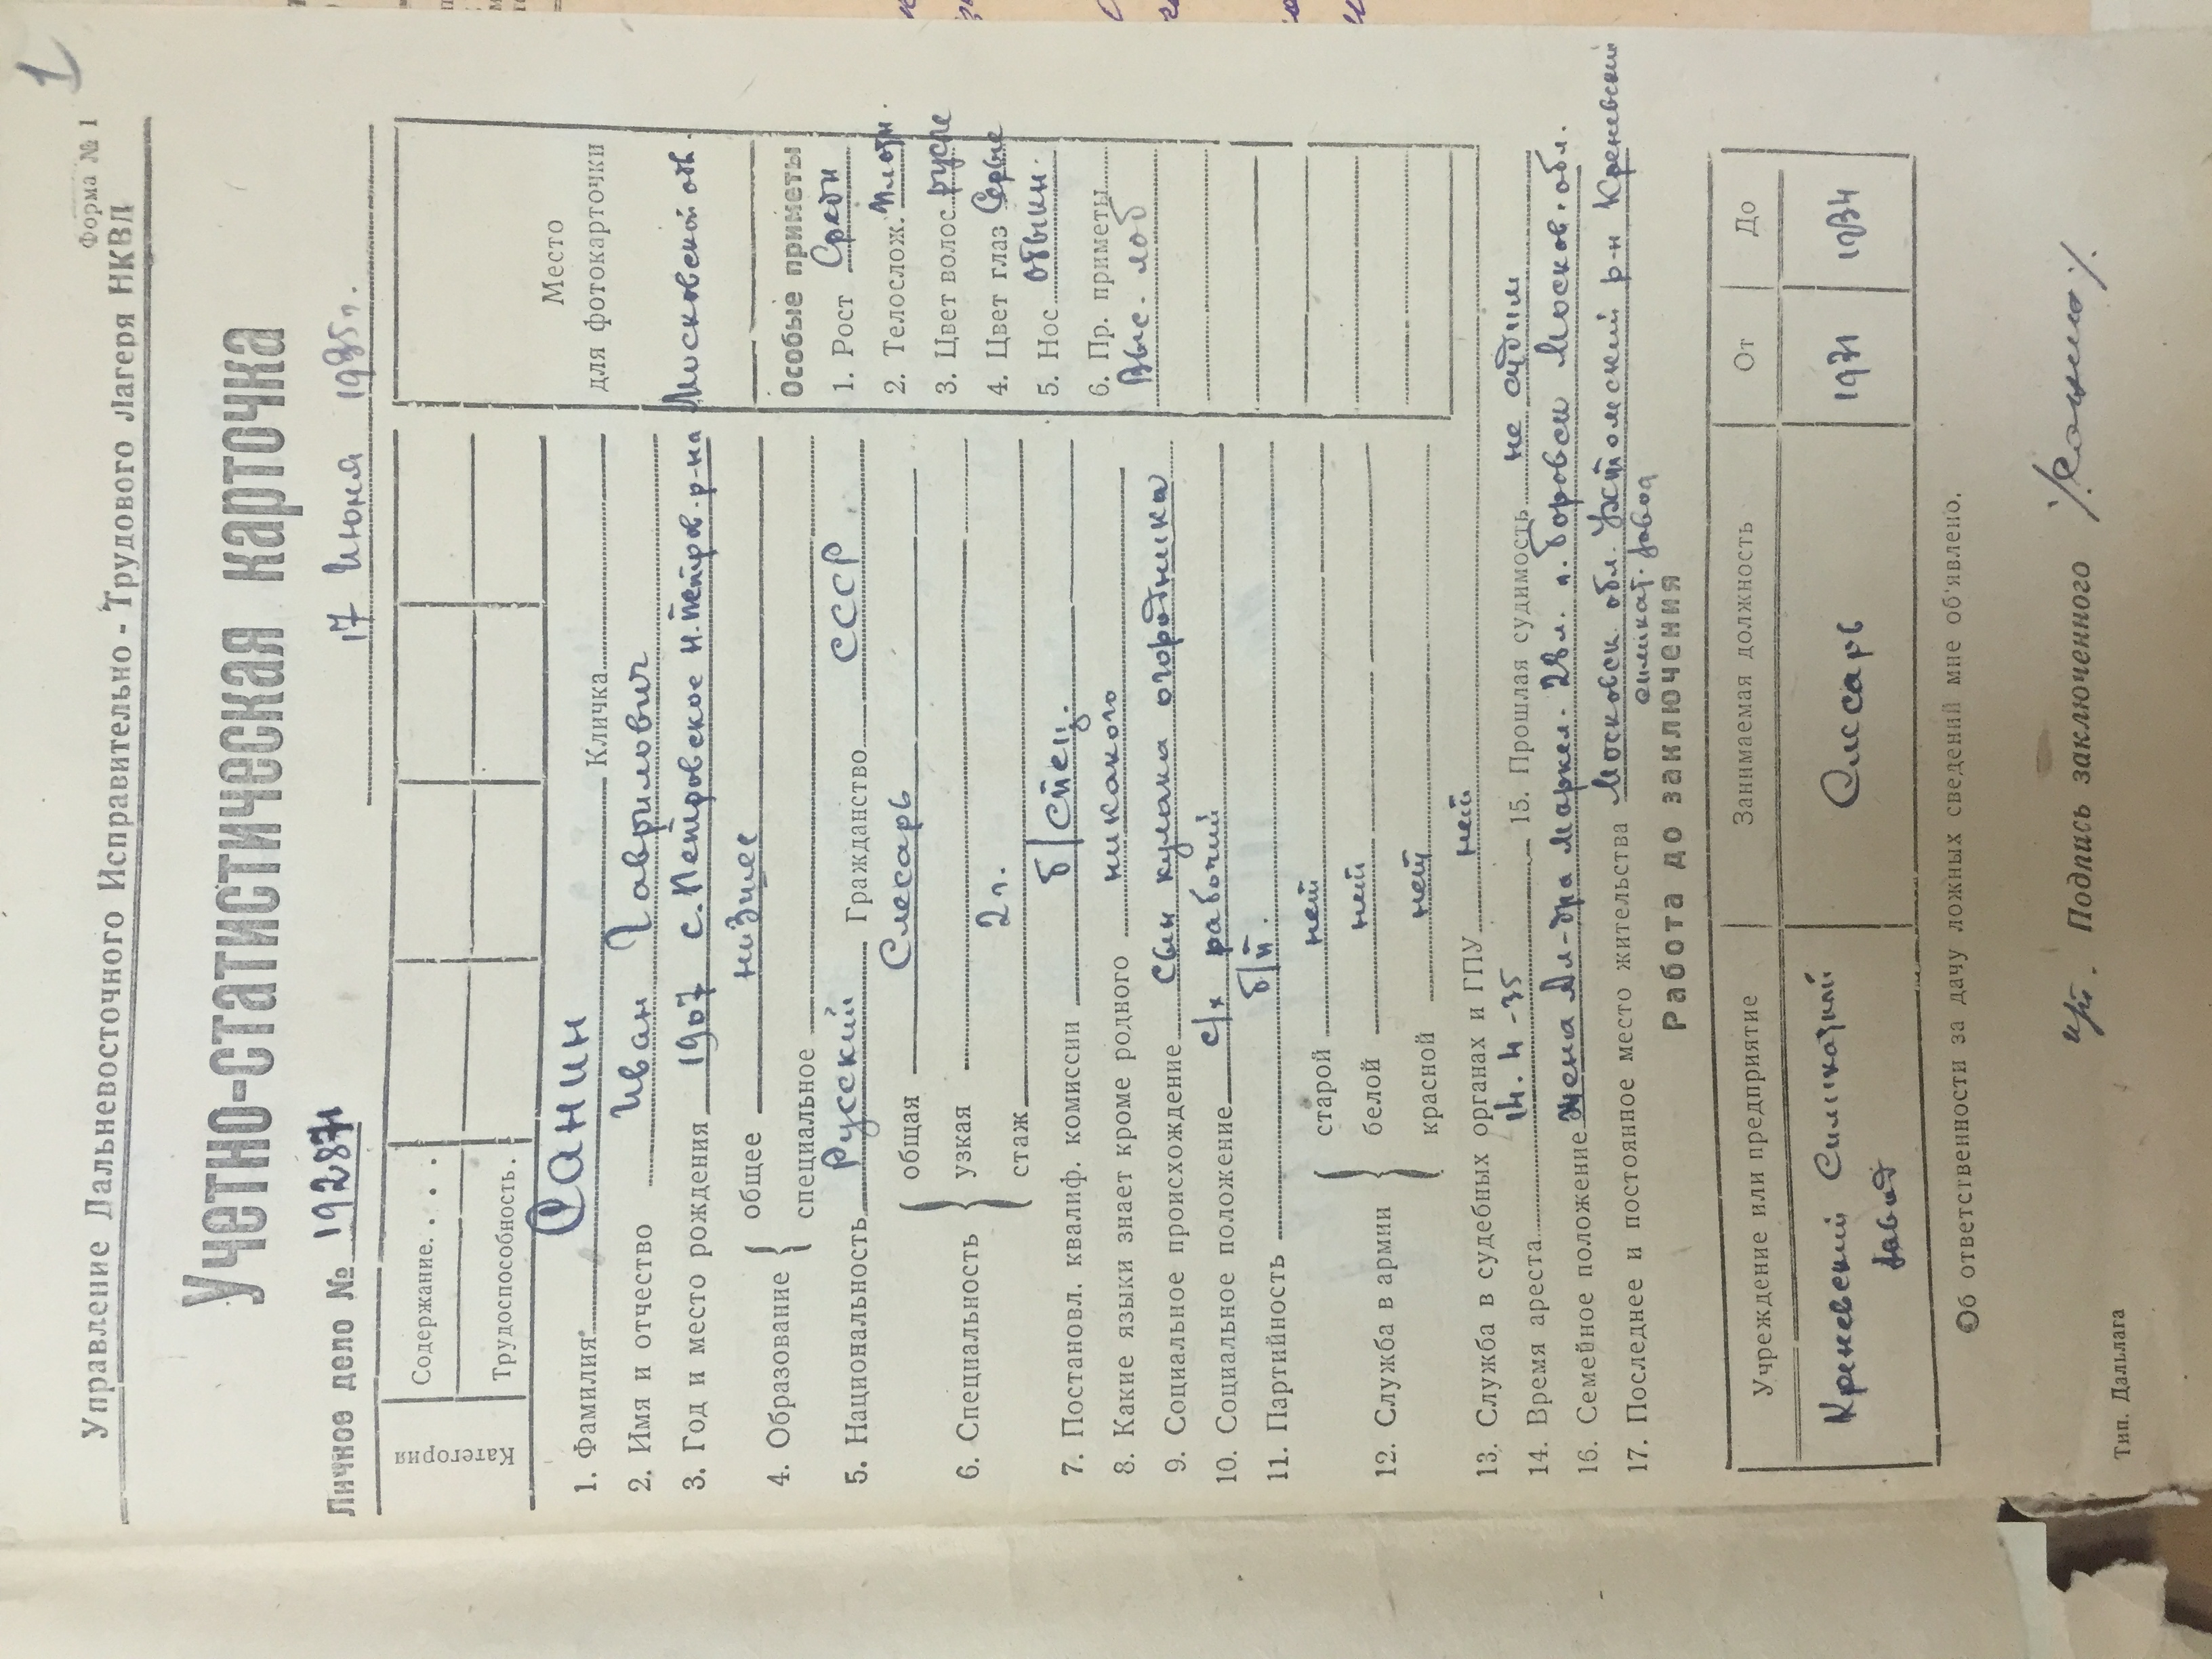 1
Форма № 1
Управление Дальневосточного Исправительно-Трудового Лагеря НКВД
Учетно-статистическая карточка
Личное дело № 192871
17 Июня 1935г.
Категория
Содержание. . . .
Трудоспособность.
Место
для фотокарточки
1. Фамилия Санин Кличка
2. Имя и отчество Иван Гаврилович
3. Год и место рождения 1907 с. Петровское Н.Петров. р-на Московской об.
4. Образование { общее низшее
специальное
5. Национальность Русский Гражданство СССР
6. Специальность { общая Слесарь
узкая
стаж 2 г.
7. Постановл. квалиф. комиссии б/спец.
8. Какие языки знает кроме родного никакого
9. Социальное происхождение сын кулака огородника
10. Социальное положение с/х рабочий
11. Партийность б/п.
12. Служба в армии { старой нет
белой нет
красной нет
Особые приметы
1. Рост Средн
2. Телослож. плотн.
3. Цвет волос русые
4. Цвет глаз Серые
5. Нос обыкн.
6. Пр. приметы
Выс. лоб
13. Служба в судебных органах и ГПУ нет
14. Время ареста 15. Прошлая судимость не судим
16. Семейное положение жена Ал-дра 28 л. Москов. обл.
17. Последнее и постоянное место жительства Московск обл. р-н Креневский
силикат. завод
Работа до заключения
Учреждение или предприятие
Занимаемая должность
От
До
Креневский Силикатный
завод
Слесарь
1931
1934
Об ответственности за дачу ложных сведений мне об'явлено.
Подпись заключенного
Тип. Дальлага